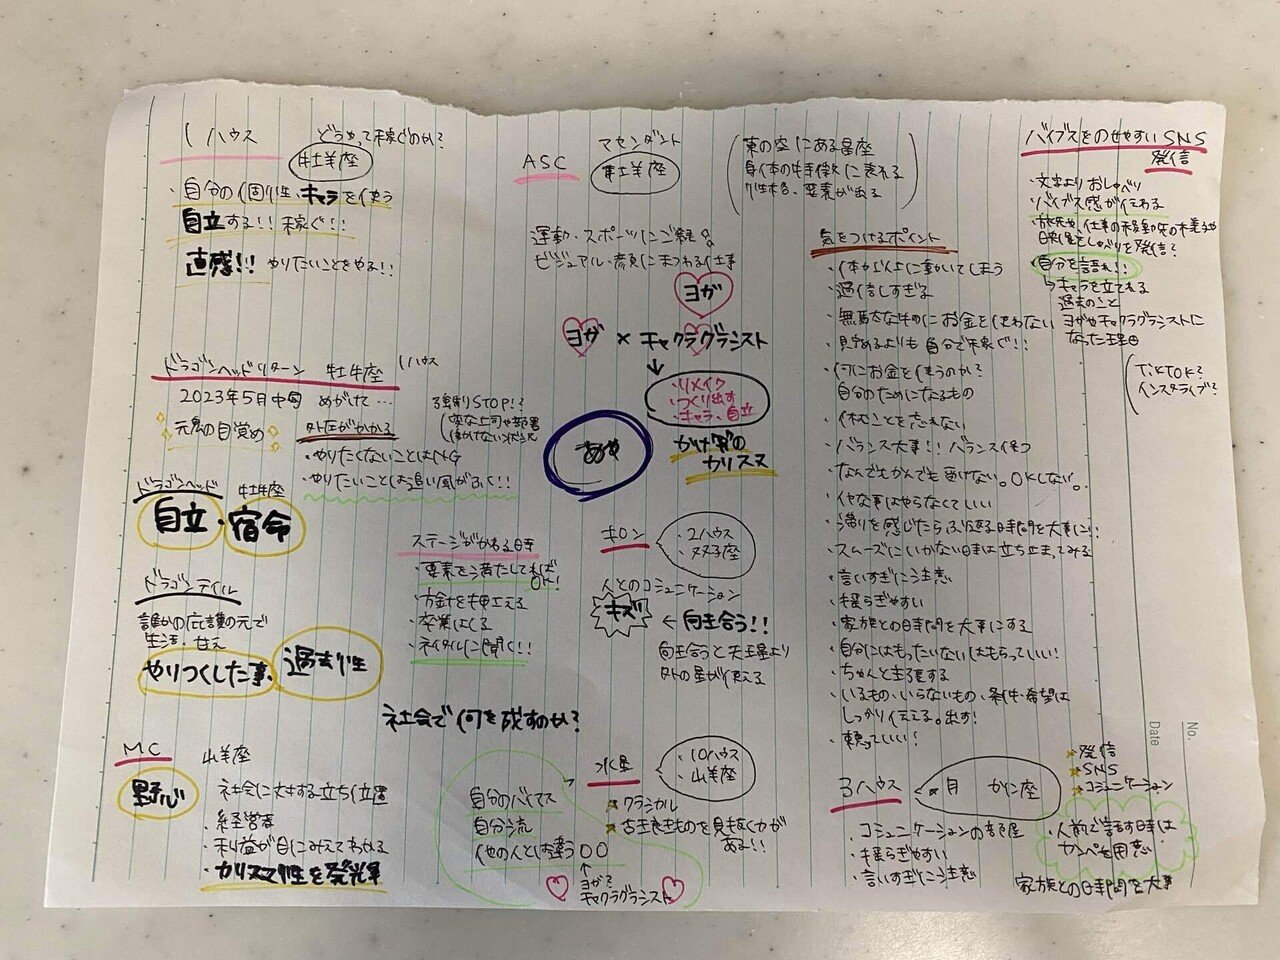 1ハウス どうやって稼ぐのか?
牡羊座
・自分の個性、キャラを使う
自立する!! 稼ぐ!!
直感!! やりたいことをやる!!
ドラゴンヘッドリターン 牡牛座 1ハウス
2023年5月中旬 めがけて…
元鬼の目覚め
外圧がかかる
・やりたくないことはNG
・やりたいことは追い風がふく!!
頑張りSTOP!?
変な上司や部署
働けない状況
ドラゴンヘッド 牡牛座
自立・宿命
ドラゴンテイル
誰かの応護の元で
生活、甘え
やりつくした事、過去性
ステージがかわる時
・要素を満たしてれば
OK!
・方針を押さえる
・卒業はくる
・ネイタルに聞く!!
社会で何を成すのか?
MC 山羊座
野心
社会に対する立ち位置
・経営者
・利益が目にみえてわかる
・カリスマ性を発揮
ASC アセンダント
牡羊座
東の空にある星座
身体の特徴に表れる
個性本名、要素が出る
運動・スポーツにご縁○
ビジュアル・容貌にまつわる仕事
ヨガ
ヨガ × チャクラグラシスト
・リメイク
・つくり出す
・キャラ、自立
かけ算の
カリスマ
あや
キロン
・2ハウス
・双子座
人とのコミュニケーション
キズ ← 向き合う!!
向き合うと天王星より
外の星が使える
水星
・10ハウス
・山羊座
クラシカル
古き良きものを見抜く力が
ある!!
自分のバイブス
自分流
他の人とは違う〇〇
↑
ヨガ?
チャクラグラシスト
気をつけるポイント
・体力以上に動いてしまう
・過信しすぎる
・無駄なものにお金を使わない
・貯めるよりも自分で稼ぐ!!
・何にお金を使うのか?
自分のためになるもの
・休むことを忘れない
・バランス大事!! バランス保つ
・なんでもかんでも受けない。OKしない。
・イヤな事はやらなくていい
・滞りを感じたらふり返る時間を大事に!!
・スムーズにいかない時は立ち止まってみる
・言いすぎに注意
・揺らぎやすい
・家族との時間を大事にする
・自分にはもったいないはもらっていい!
・ちゃんと主張する
・いるもの、いらないもの、条件・希望は
しっかり伝える。出す!
・頼っていい!
3ハウス 月 かに座
・コミュニケーションの部屋
・揺らぎやすい
・言いすぎに注意
発信
SNS
コミュニケーション
・人前で話す時は
カンペを用意
家族との時間を大事
バイブスをのせやすいSNS
発信
・文字よりおしゃべり
バイブス感が伝わる
・旅先や、仕事の移動中の様子や
映像としゃべりを発信?
・自分を語れ!!
↳キャラを立てれる
過去のこと
ヨガやチャクラグラシストに
なった理由
TikTOK?
インスタライブ?
No.
Date